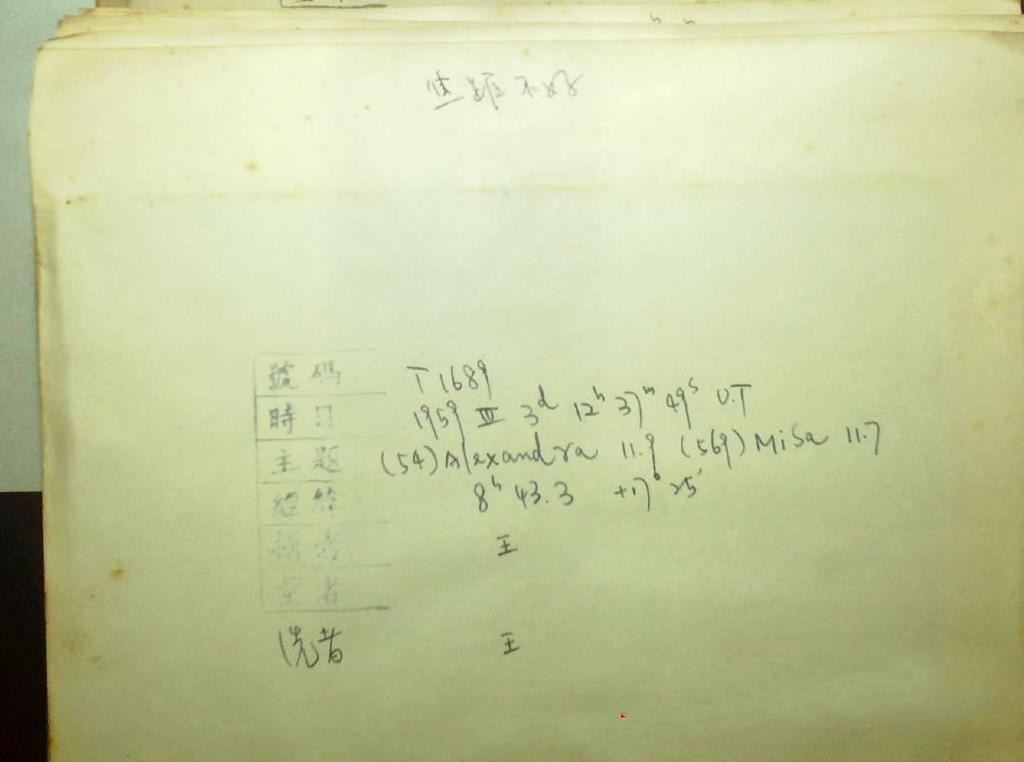 焦距不好
號碼 T 1689
時日 1959 III 3d 12h 37m 49s U.T
主題 (54) Alexandra 11.9 (569) Misa 11.7
8h 43.3 +17° 25'
王
者
洗者 王